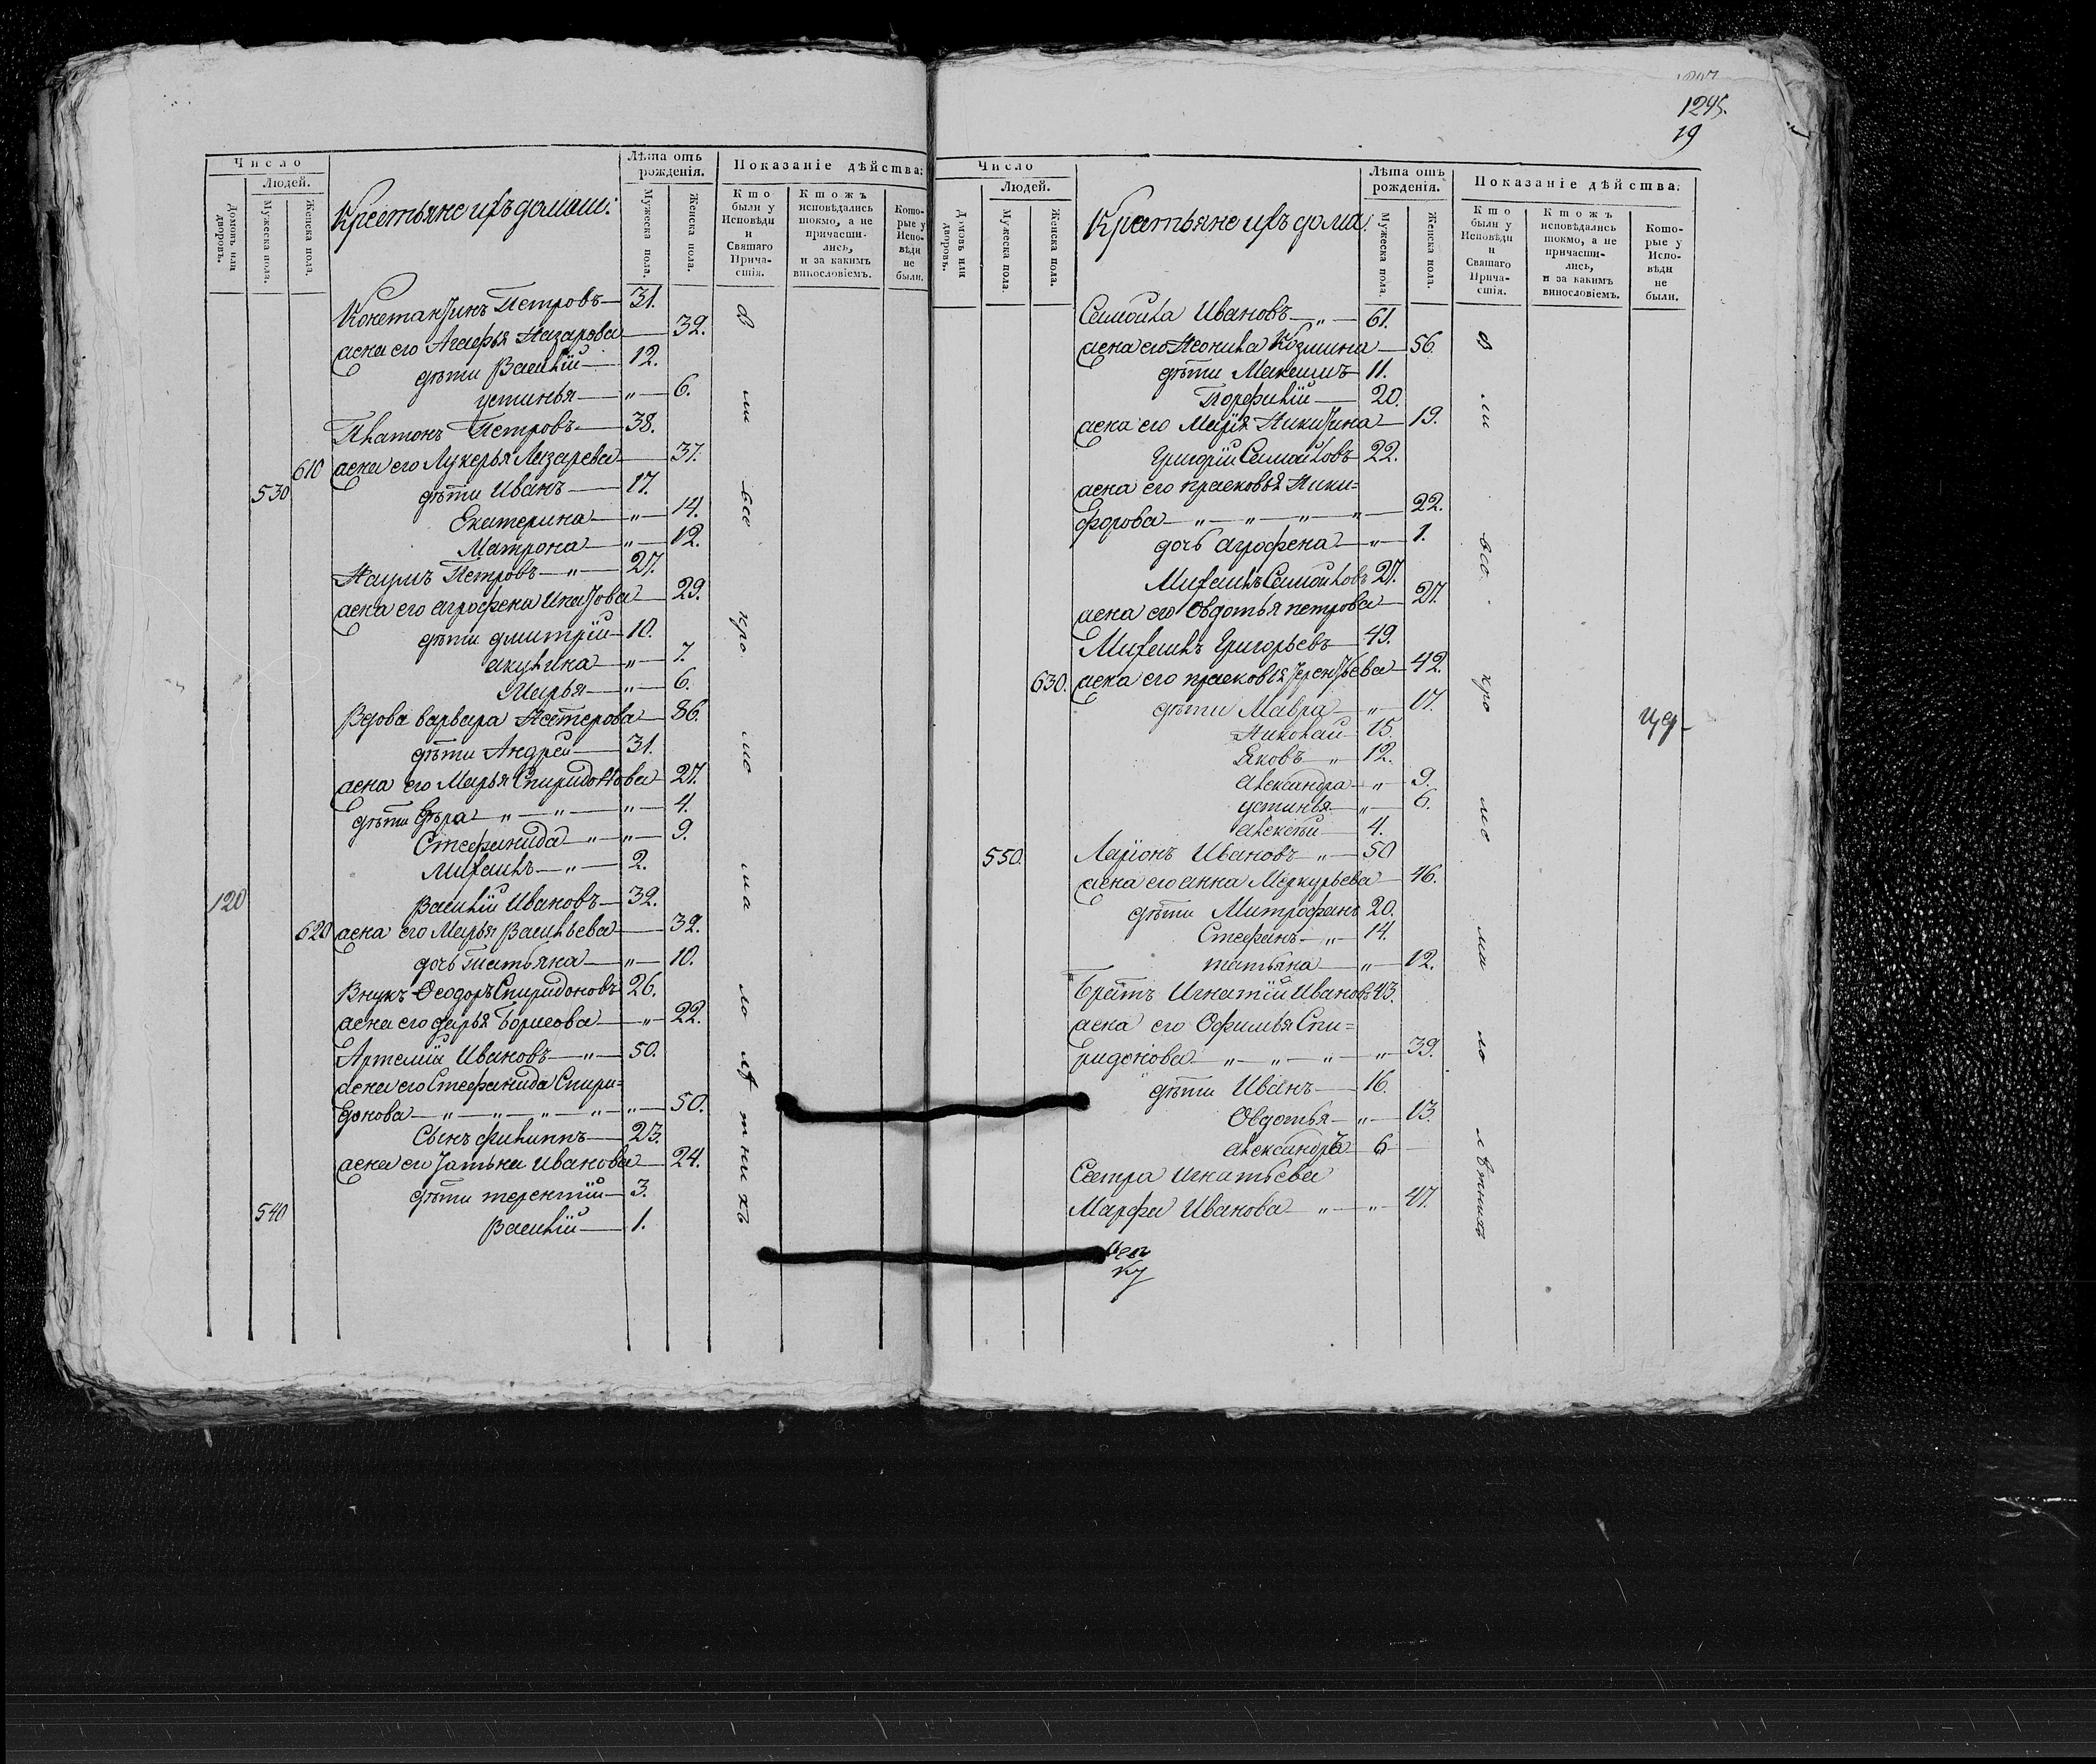 Число
Людей.
Домовъ или дворовъ.
Мужеска пола.
Женска пола.
Крестьяне ихъ домаш:
Лѣта отъ рожденія.
Мужеска пола.
Женска пола.
Показаніе дѣйства:
Кто были у Исповѣди и Святаго Прича-стія.
Ктожъ исповѣдались токмо, а не причасти-лись, и за какимъ винословіемъ.
Кото-рые у Испо-вѣди не были.
Константинъ Петровъ 31.
жена его Агафья Назарова 32.
дѣти Василій 12.
устинья „ 6.
Платонъ Петровъ 38.
610 жена его Лукерья Лазарева 37.
530 дѣти Иванъ 17.
Екатерина „ 14.
Матрона „ 12.
Наумъ Петровъ „ 27.
жена его агрофена Игнатова 29.
дѣти дмитрій 10.
акулина „ 7.
Марья „ 6.
Вдова варвара Нестерова 86.
дѣти Андрей 31.
жена его Марья Спиридонова 27.
дѣти Вѣра „ „ „ 4.
Стефанида „ „ 9.
Михаилъ „ 2.
120 Василій Ивановъ 32.
620 жена его Марья Васильева 32.
дочь Татьяна „ 10.
Внукъ Ѳеодоръ Спиридоновъ 26.
жена его дарья Борисова „ 22.
Артемій Ивановъ „ 50.
жена его Стефанида Спири=
донова „ „ „ „ „ 50.
Сынъ филиппъ 23.
жена его Татьяна Иванова 24.
дѣти терентій 3.
540 Василій 1.
1245.
19
Число
Людей.
Домовъ или дворовъ.
Мужеска пола.
Женска пола.
Крестьяне ихъ дома
Лѣта отъ рожденія.
Мужеска пола.
Женска пола.
Показаніе дѣйства.
Кто были у Исповѣди и Святаго Прича-стія.
Ктожъ исповѣдались токмо, а не причасти-лись, и за какимъ винословіемъ.
Кото-рые у Испо-вѣди не были.
Самойла Ивановъ „ 61.
жена его Леонила Козмина 56
дѣти Максимъ 11.
Порфилій 20.
жена его Марія Никитина 19.
Григорій Самойловъ 22.
жена его прасковья Ники=
форова „ „ „ „ 22.
дочь агрофена „ 1.
Михаилъ Самойловъ 27.
жена его Овдотья петрова 27.
Михаилъ Григорьевъ 49.
630. жена его прасковья Терентьева 42.
дѣти Мавра „ 17.
Николай 15.
Яковъ „ 12.
александра „ 9.
устинья „ 6.
алексѣй 4.
550. Ларіонъ Ивановъ „ 50
жена его анна Меркурьева 46.
дѣти Митрофанъ 20.
Стефанъ „ 14.
татьяна „ 12.
Братъ Игнатій Ивановъ 43.
жена его Офимья Спи=
ридонова „ „ „ „ 39.
дѣти Иванъ 16.
Овдотья „ 13.
александръ 6
Сестра Игнатьева
Марфа Иванова „ „ 47.